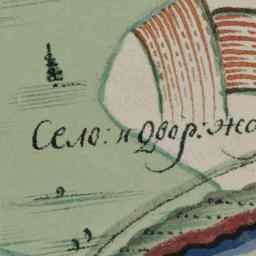 Село: и двор: жо